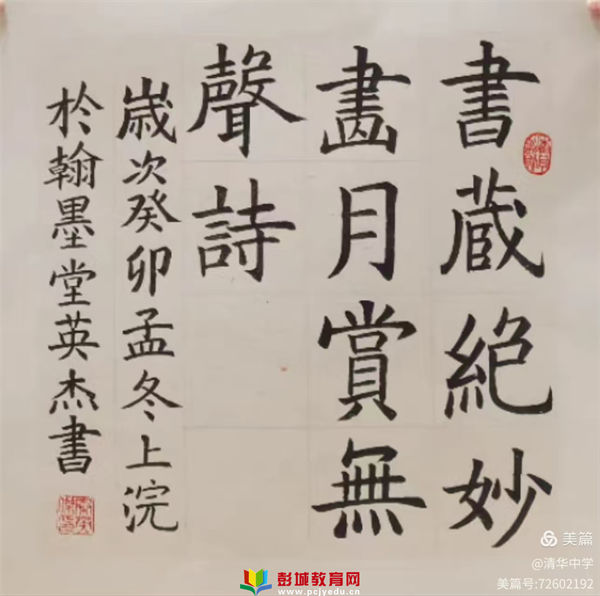 書蔵絶妙
畫月賞無
聲詩
歳次癸卯孟冬上浣
於翰墨堂英杰書
美篇
@清华中学
美篇号:72602192
彭城教育网
www.pcjyedu.cn